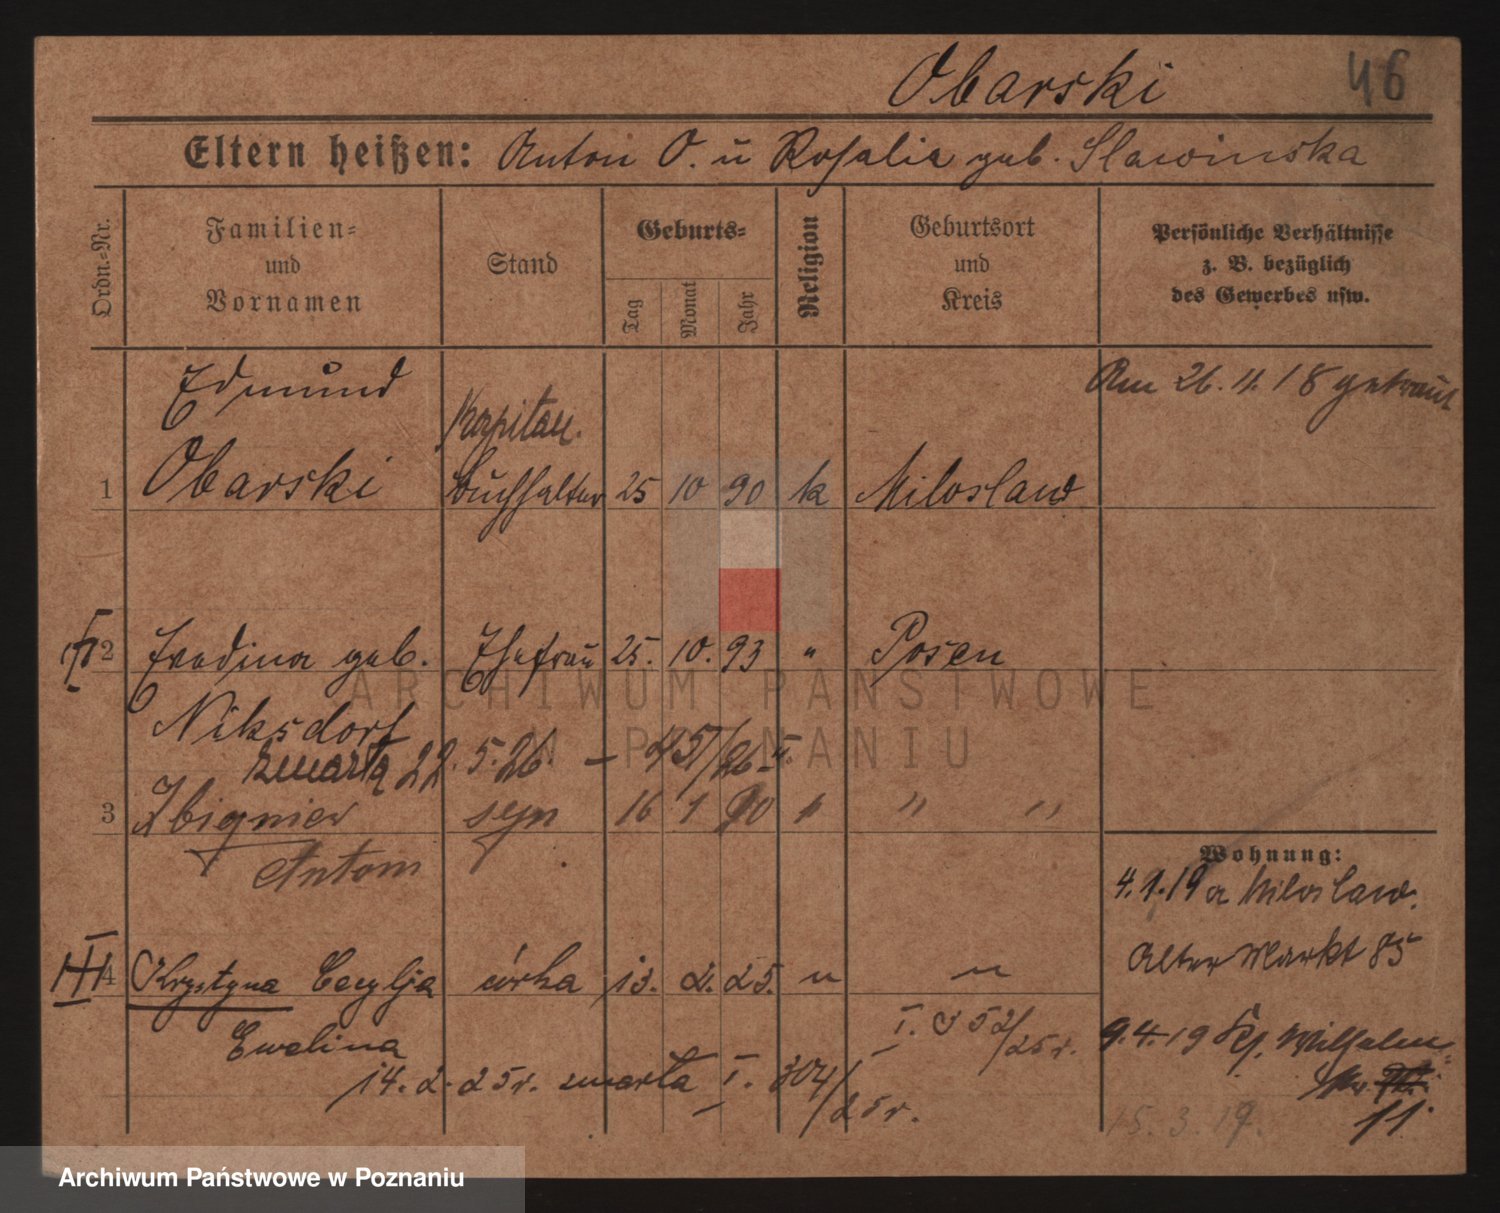 Obarski 46
Eltern heißen: Anton O. u Rosalia geb. Slawinska
Ordn.-Nr.
Familien-
und
Vornamen
Stand
Geburts-
Tag
Monat
Jahr
Religion
Geburtsort
und
Kreis
Persönliche Verhältnisse
z. B. bezüglich
des Gewerbes usw.
Edmund
Am 26. 11. 18 getraut
1 Obarski Buchhalter 25 10 90 k Miloslaw
2 geb. Ehefrau 25. 10. 93 " Posen
Niksdorf
zmarła 22. 5. 26.
3 Zbigniew syn 16 1 20 " " "
Antoni
Wohnung:
4. 1. 19 a Miloslaw.
Alter Markt 85
4 Krystyna Cecylja córka 13. 2. 25. " "
I. 52/25 r.
Ewelina
9. 4. 19 Wilhelm
14. 2. 25 r. zmarła I. 304/25 r.
11.
15. 3. 19.
ARCHIWUM PAŃSTWOWE
W POZNANIU
Archiwum Państwowe w Poznaniu